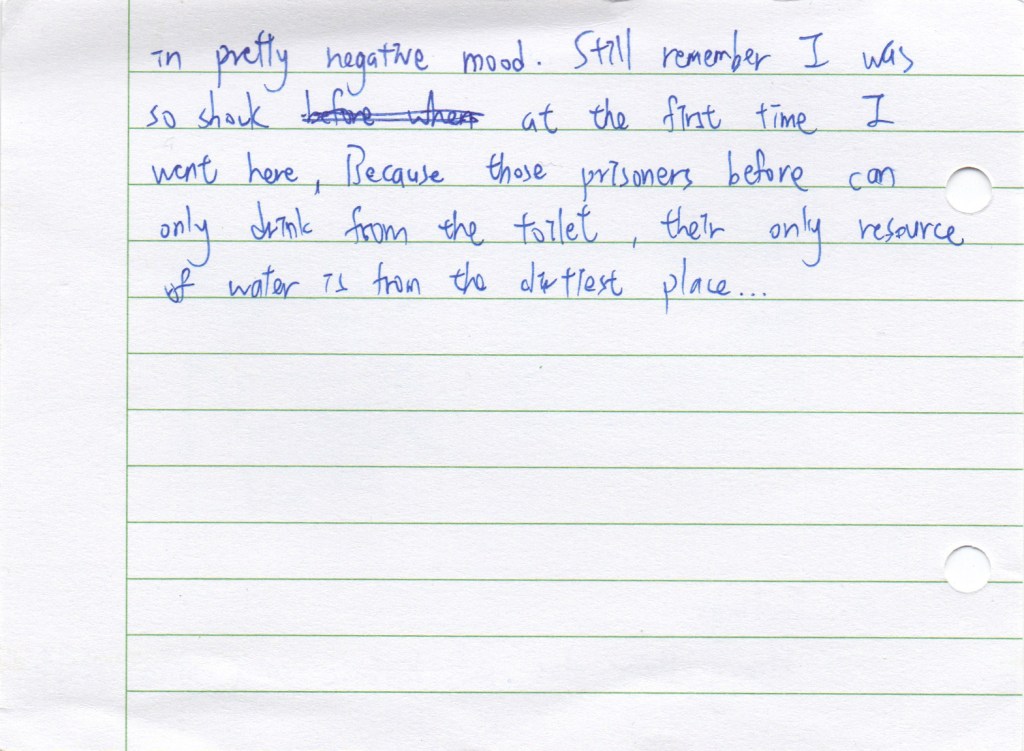 in pretty negative mood. Still remember I was
so shock before when at the first time I
went here, Because those prisoners before can
only drink from the toilet, their only resource
of water is from the dirtiest place...